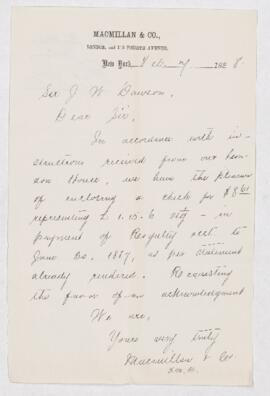 MACMILLAN & CO.,
LONDON, and 112 FOURTH AVENUE,
New York, Feby 7 1888.
Sir J W Dawson,
Dear Sir,
In accordance with in-
structions received from our Lon-
don House, we have the pleasure
of enclosing a check for $8.61
representing £1.15.6 stg - in
payment of Royalty acct. to
June 30. 1887, as per statement
already rendered. Requesting
the favor of an acknowledgment
We are,
Yours very truly
Macmillan & Co